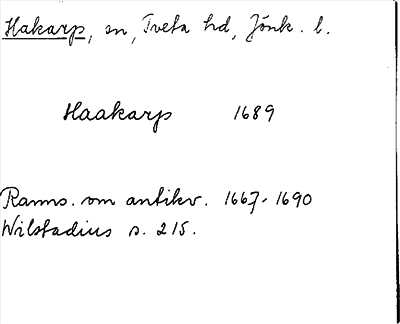 Hakarp, sn, Tveta hd, Jönk. l.
Haakarp 1689
Ranns. om antikv. 1667-1690
Wilstadius s. 215.